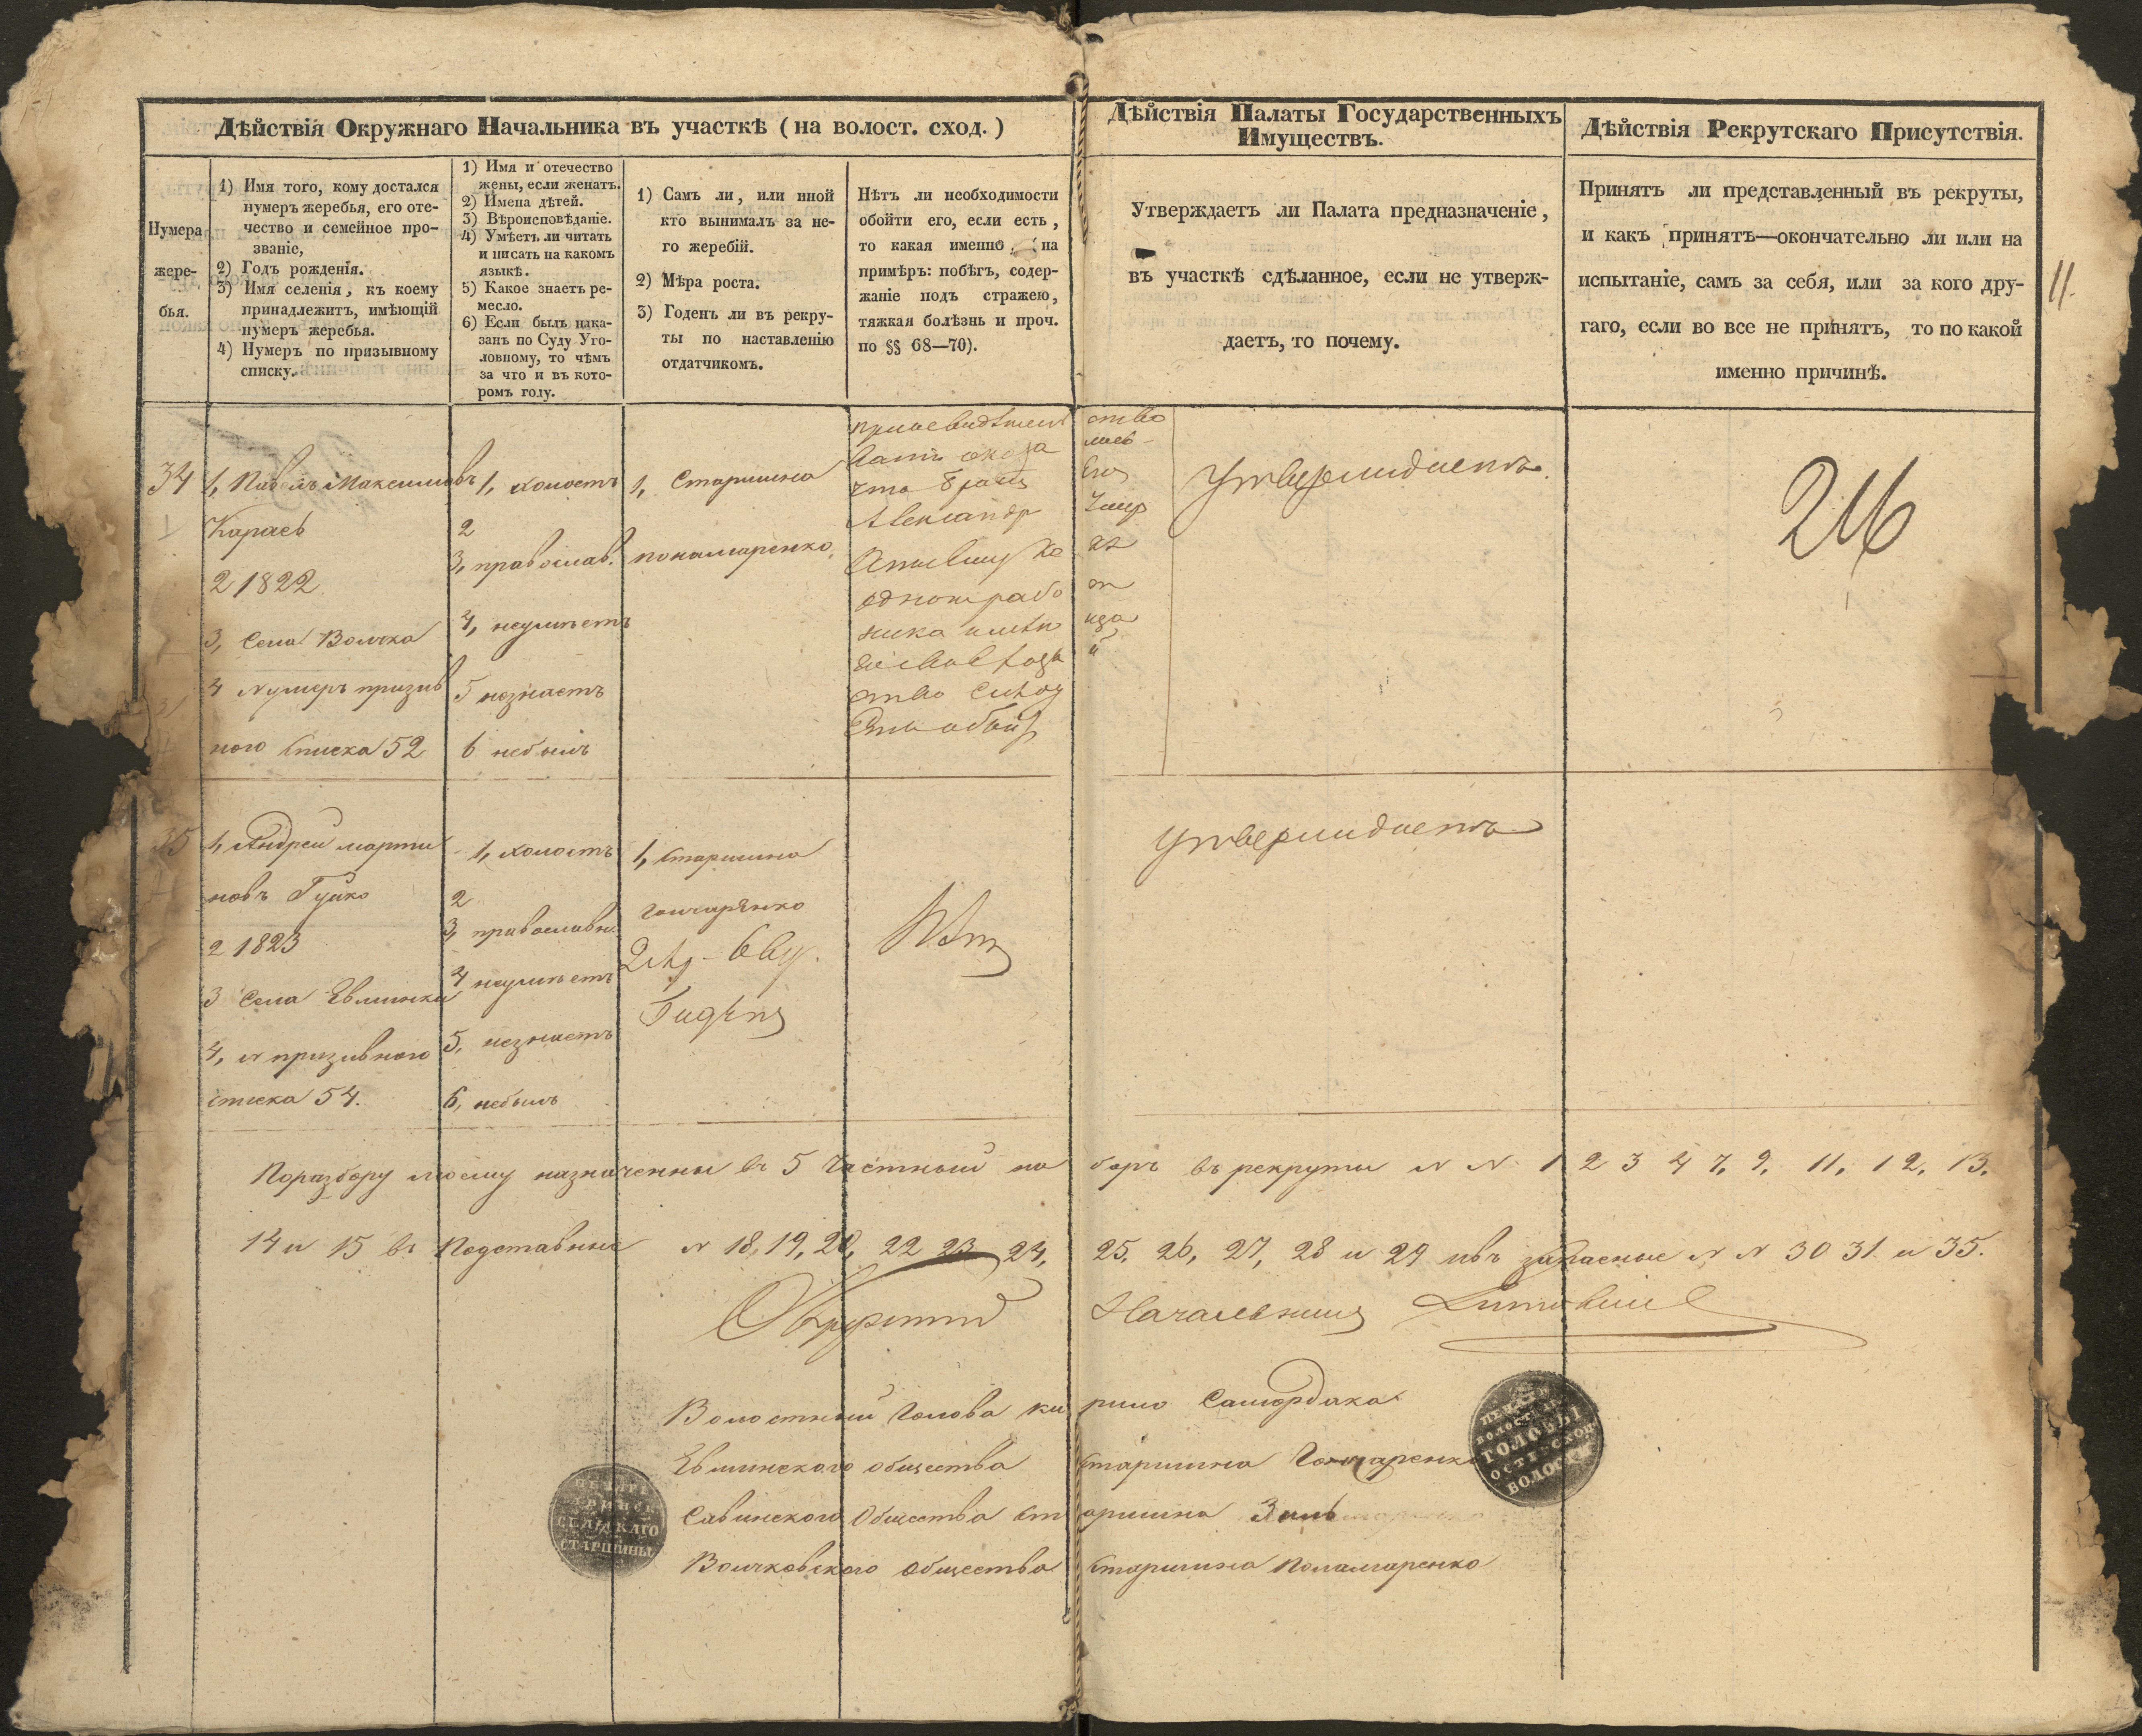 Дѣйствія Окружнаго Начальника въ участкѣ (на волост. сход.)
Дѣйствія Палаты Государственныхъ
Имуществъ.
Дѣйствія Рекрутскаго Присутствія.
Нумера
жере-
бья.
1) Имя того, кому достался
нумеръ жеребья, его оте-
чество и семейное про-
званіе,
2) Годъ рожденія.
3) Имя селенія, къ коему
принадлежитъ, имѣющій
нумеръ жеребья.
4) Нумеръ по призывному
списку.
1) Имя и отечество
жены, если женатъ.
2) Имена дѣтей.
3) Вѣроисповѣданіе.
4) Умѣетъ ли читать
и писать на какомъ
языкѣ.
5) Какое знаетъ ре-
месло.
6) Если былъ нака-
занъ по Суду Уго-
ловному, то чѣмъ
за что и въ кото-
ромъ году.
1) Самъ ли, или иной
кто вынималъ за не-
го жеребій.
2) Мѣра роста.
3) Годенъ ли въ рекру-
ты по наставленію
отдатчикомъ.
Нѣтъ ли необходимости
обойти его, если есть,
то какая именно, на
примѣръ: побѣгъ, содер-
жаніе подъ стражею,
тяжкая болѣзнь и проч.
по §§ 68—70).
Утверждаетъ ли Палата предназначеніе,
въ участкѣ сдѣланное, если не утверж-
даетъ, то почему.
Принятъ ли представленный въ рекруты,
и какъ принятъ—окончательно ли или на
испытаніе, самъ за себя, или за кого дру-
гаго, если во все не принятъ, то по какой
именно причинѣ.
11.
34
1, Павелъ Максимовъ
Караев
2 1822.
3, Села Волчка
4 Нумеръ призив
ного списка 52
1, холостъ
2
3, православ.
4, неумѣетъ
5 незнаетъ
6 небылъ
1, Старшина
пономаренко
что братъ Его
Александр Умер
Утверждаетъ.
216
35
1, Андрей марти
новъ Гуйко
2 1823
3 Села Евминки
4, N призивного
списка 54.
1, холостъ
2
3, православн.
4 неумѣетъ
5, незнаетъ
6, небылъ
1, старшина
гончаренко
Нѣтъ
Утверждаетъ
Поразбору моему назначенны въ 5 Частный на боръ въ рекруты N N 1 2 3 4 7, 9, 11, 12, 13,
14 и 15 въ Подставные N 18, 19, 20, 22 23 24, 25, 26, 27, 28 и 29 ивъ запасные N N 30 31 и 35.
Окружный Начальникъ
Волостный Голова кирило Саморdака
Евминского общества старшина Гончаренко
Савинского Общества старшина Зинь
Волчковского общества старшина Пономаренко
ПЕЧАТЬ
ВОЛОСТНАГО
ГОЛОВЫ
ОСТЕРСКОЙ
ВОЛОСТИ
СЕЛЬСКАГО
СТАРШИНЫ